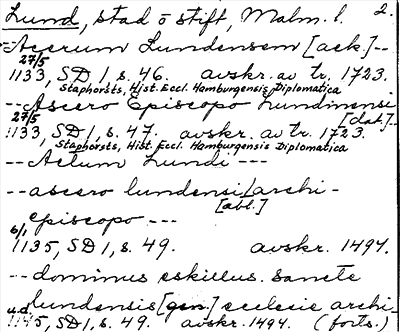 Lund, stad o stift, Malm. l. 2.
--Acerum Lundensem [ack.]--
27/5
1133, SD 1, s. 46. avskr. av tr. 1723.
Staphorsts, Hist. Eccl. Hamburgensis Diplomatica
--Ascero Episcopo Lundinensi
[dat.]--
27/5
1133, SD 1, s. 47. avskr. av tr. 1723.
Staphorsts, Hist. Eccl. Hamburgensis Diplomatica
--Actum Lundi---
--ascero lundensi archi-
[abl.]
episcopo---
6/1
1135, SD 1, s. 49. avskr. 1494.
--dominus eskillus. sancte
lundensis [gen.] ecclesie archi-
u.d.
1145, SD 1, s. 49. avskr. 1494. (forts.)